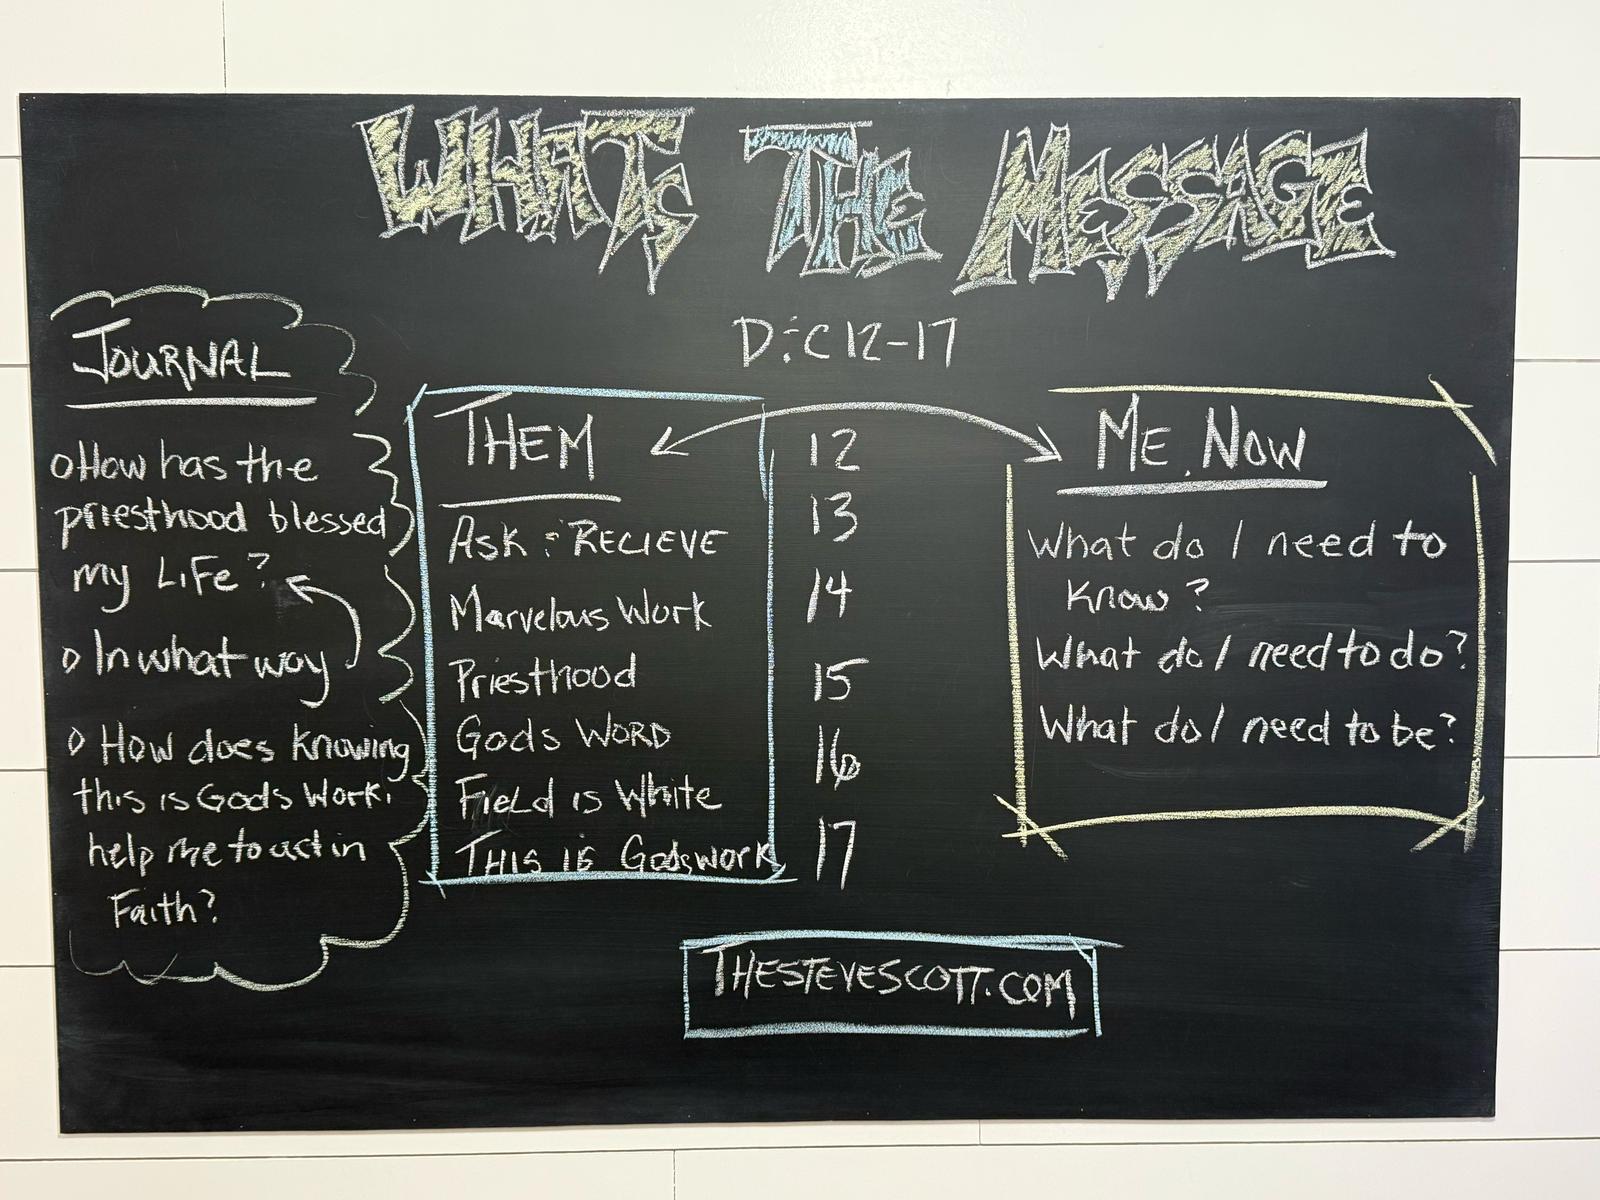 WHATS THE MESSAGE
D:C 12-17
JOURNAL
o How has the
priesthood blessed
my LiFe?
o In what way
o How does knowing
this is Gods Work.
help me to act in
Faith?
THEM
ASK : RECIEVE
Marvelous Work
Priesthood
Gods WORD
FieLd is White
THIS IS Godswork
12
13
14
15
16
17
ME. NOW
What do I need to
Know?
What do I need to do?
What do I need to be?
THESTEVESCOTT.COM